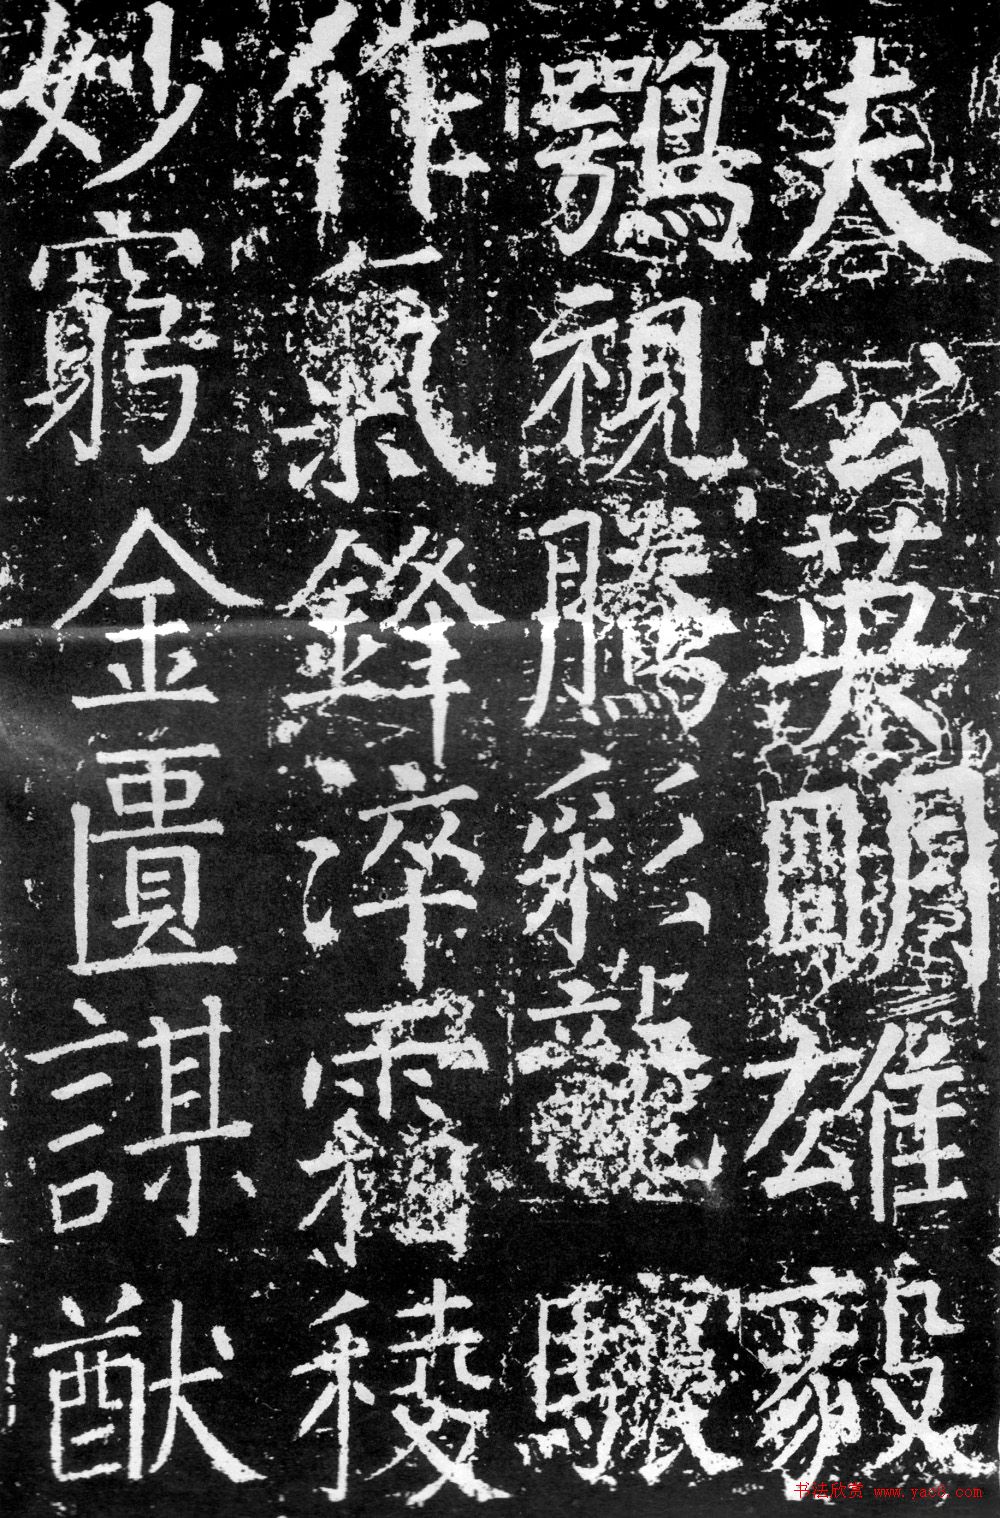 夫公英明雄毅
鶚視騰彩龍驤
作氣鋒淬霜稜
妙窮金匱謀猷
书法欣赏 www.yac8.com